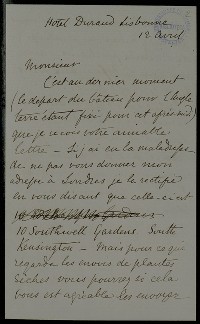 Hotel Durand Lisbonne
12 Avril
Monsieur
C'est au dernier moment
(le départ du bateau pour l'Angle
terre étant fixé pour cet après midi)
que je reçois votre aimable
lettre - Si j'ai eu la maladresse
de ne pas vous donner mon
adresse à Londres je la rectifie
en vous disant que celle-ci est
10 Southwell Gardens South
Kensington - Mais pour ce qui
regarde les envois de plantes
sèches vous pourrez si cela
vous est agréable les envoyer